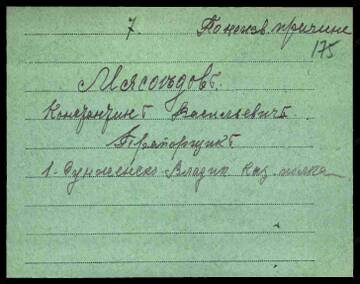 7. По неизв. причине
175
Мясоѣдовъ
Константинъ Васильевичъ
Прапорщикъ
1-Сунженско-Владик. каз. полка